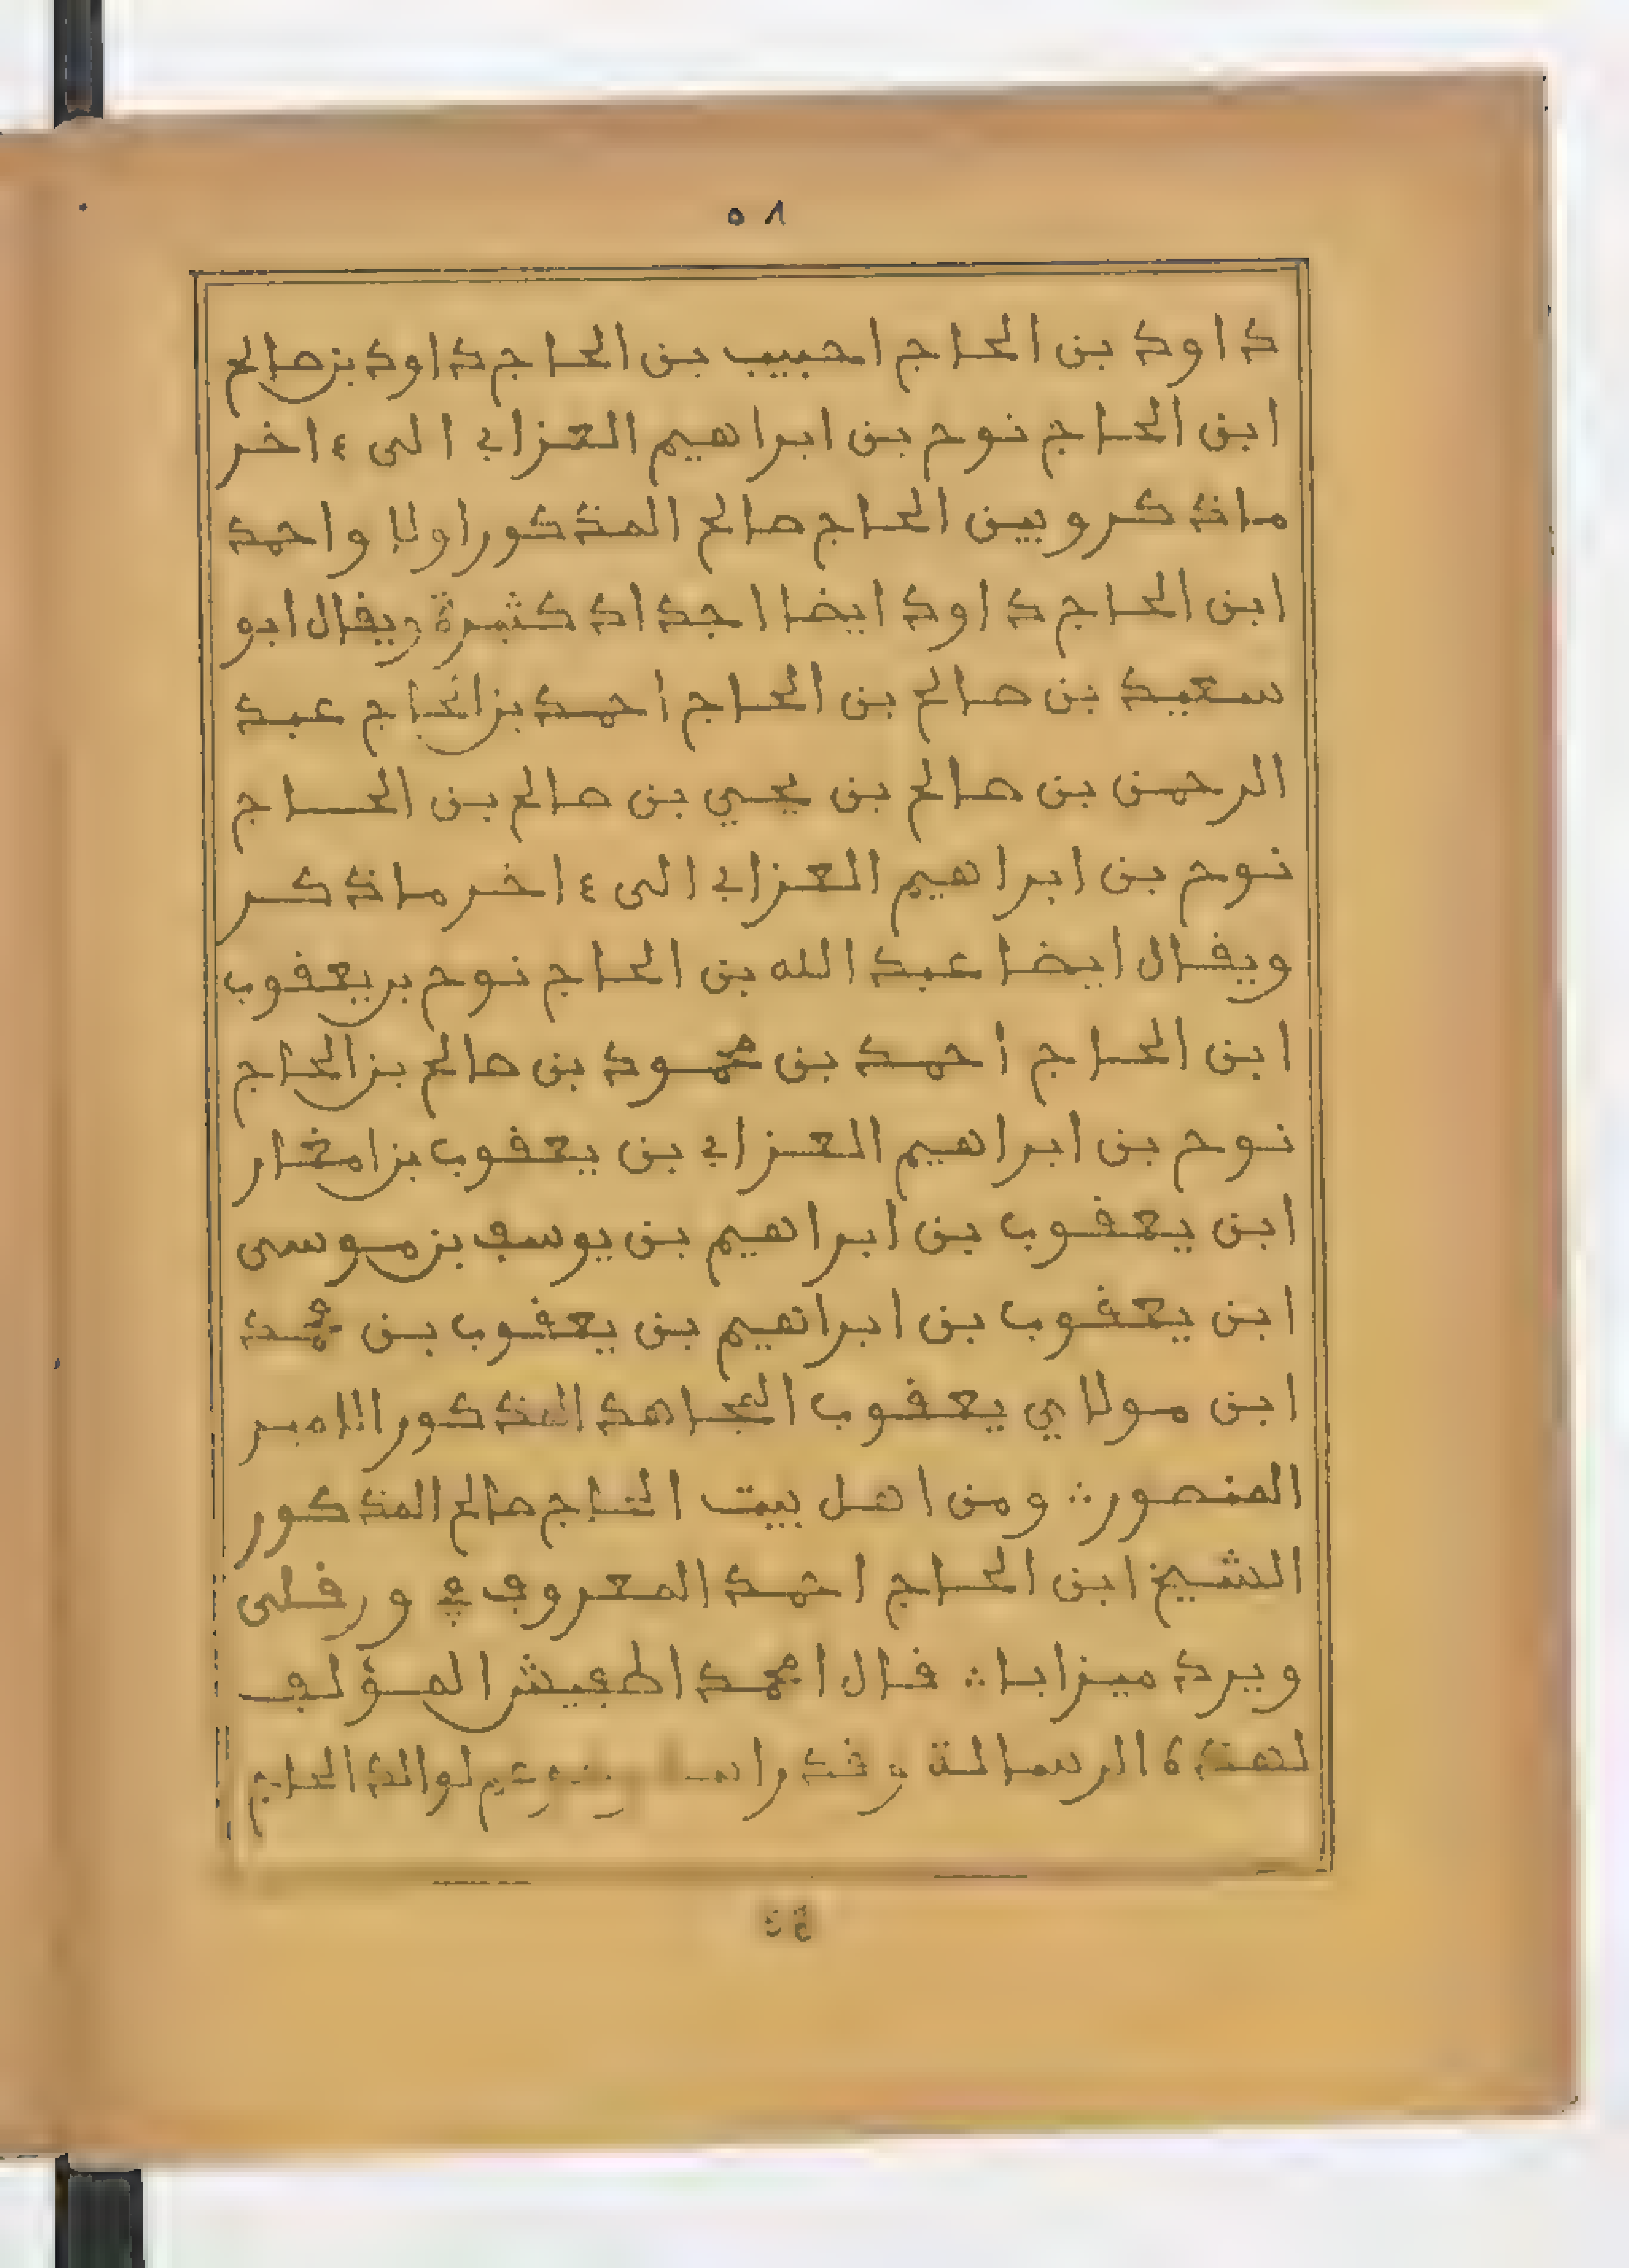 ٥٨
داود بن الحاج احبيب بن الحاج داود بن صالح
ابن الحاج نوح بن ابراهيم العزابي الى ءاخر
ما ذكر وبين الحاج صالح المذكور اولا واحمد
ابن الحاج داود ايضا اجداد كثيرة ويقال ابو
سعيد بن صالح بن الحاج أحمد بن الحاج عبد
الرحمن بن صالح بن يحيي بن صالح بن الحاج
نوح بن ابراهيم العزابي الى ءاخر ما ذكر
ويقال ايضا عبد الله بن الحاج نوح بن يعقوب
ابن الحاج أحمد بن محمود بن صالح بن الحاج
نوح بن ابراهيم العزابي بن يعقوب بن امغار
ابن يعقوب بن ابراهيم بن يوسف بن موسى
ابن يعقوب بن ابراهيم بن يعقوب بن محمد
ابن مولاي يعقوب المجاهد المذكور الامير
المنصور ؞ ومن اهل بيت الحاج صالح المذكور
الشيخ ابن الحاج احمد المعروف في ورقلى
ويرد ميزابا ؞ قال امحمد اطفيش المؤلف
لهذه الرسالة وقد لوالد الحاج